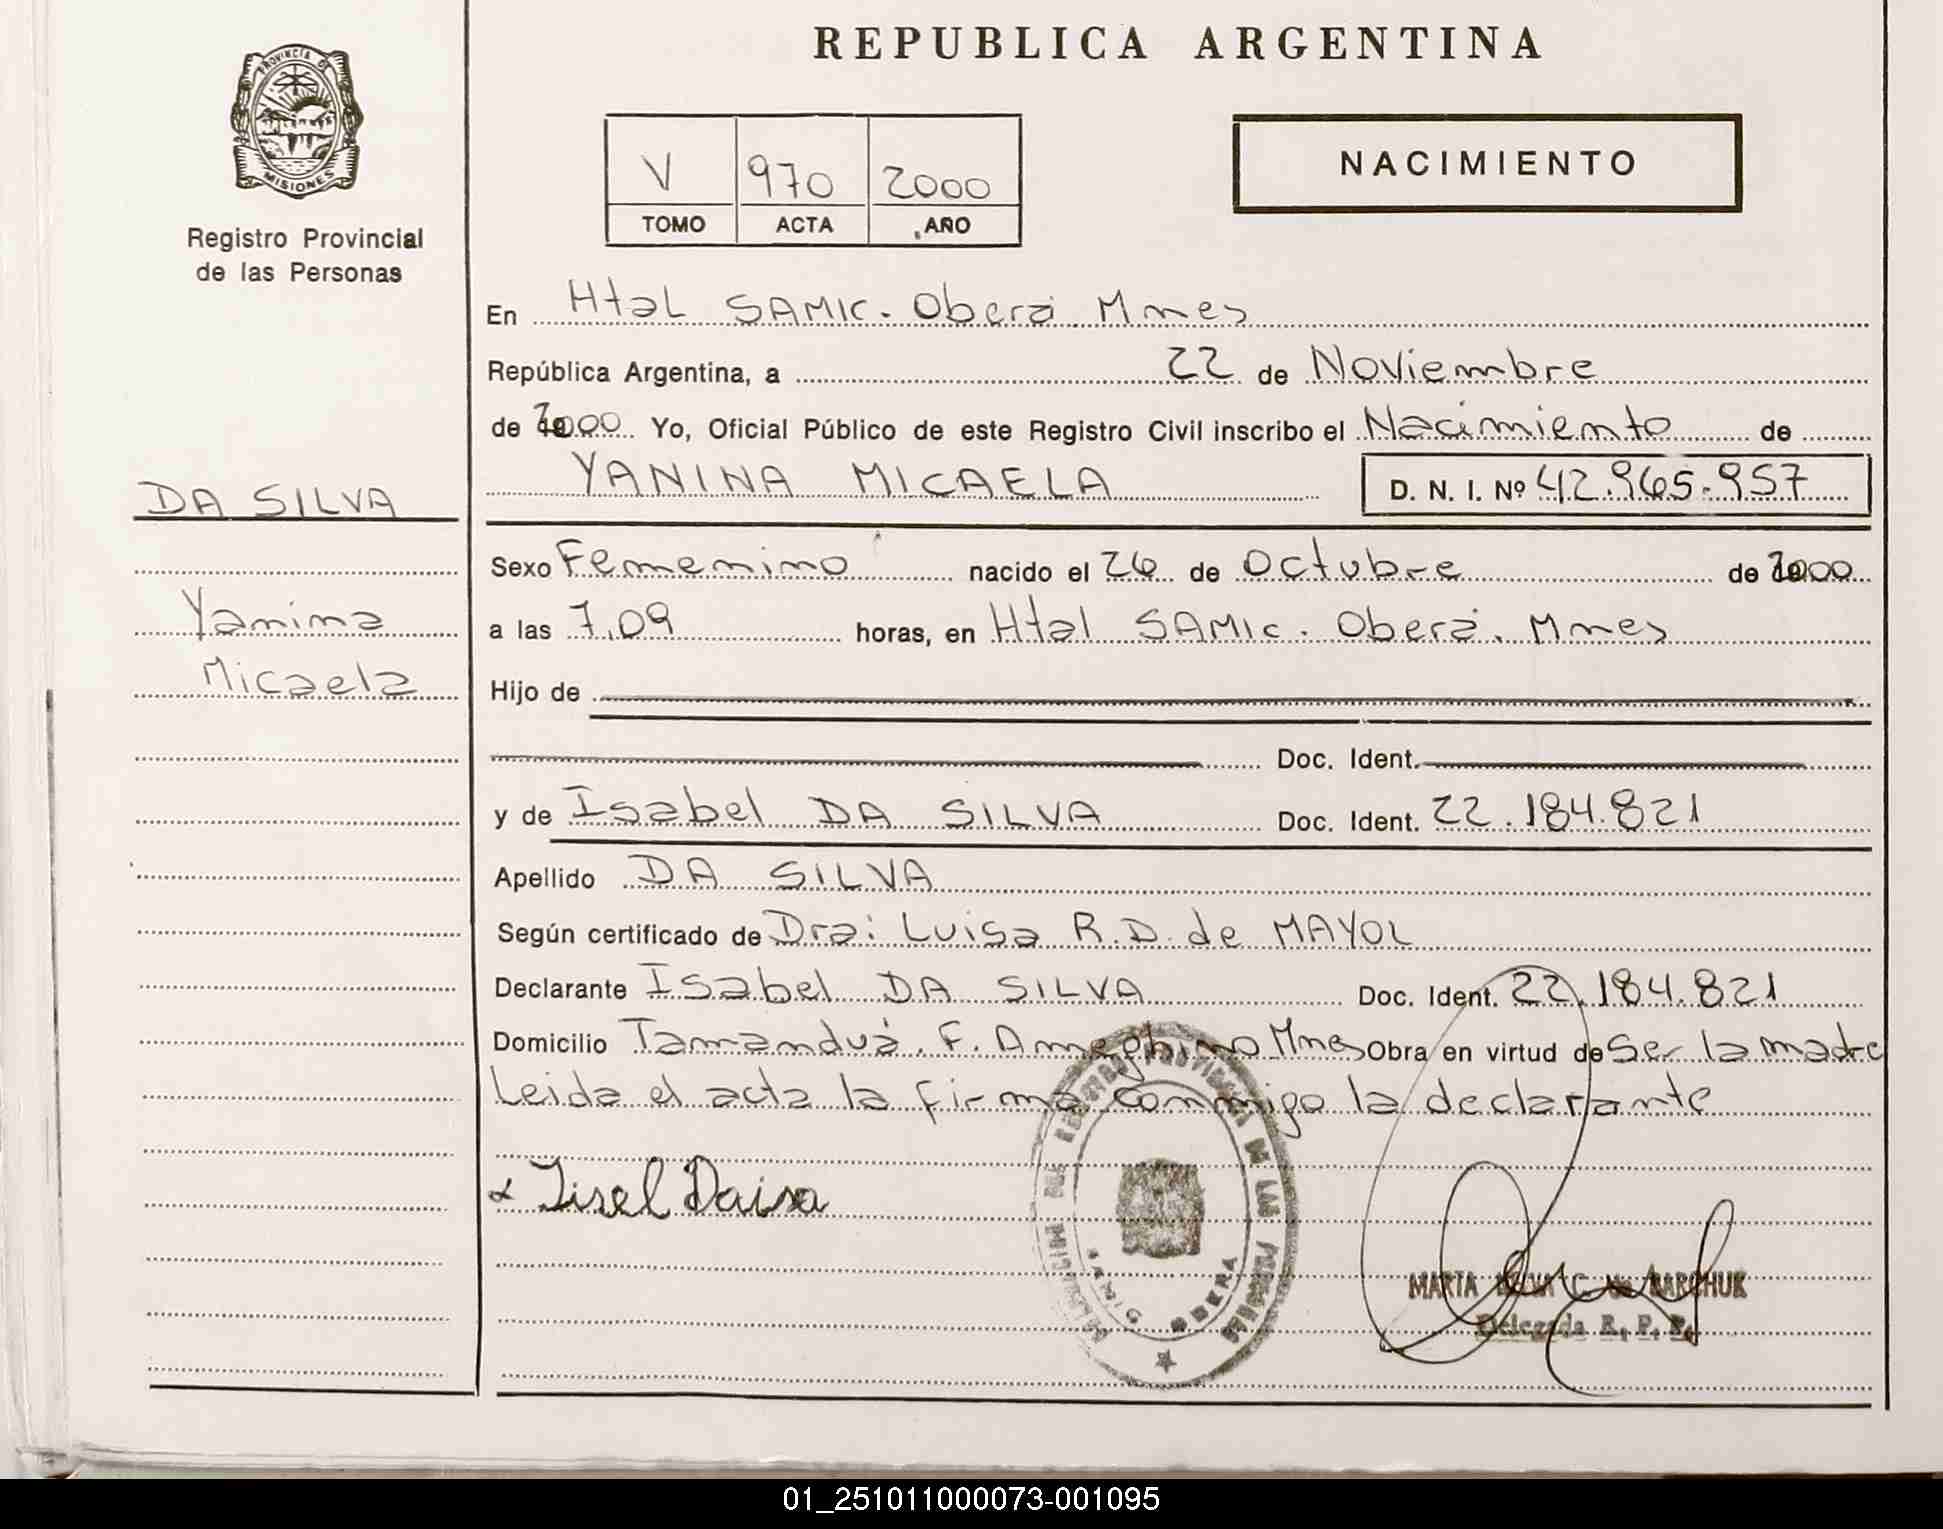 REPUBLICA ARGENTINA
PROVINCIA DE
MISIONES
Registro Provincial
de las Personas
V 970 2000
TOMO ACTA AÑO
NACIMIENTO
En Htal SAMIC. Oberá Mnes
República Argentina, a 22 de Noviembre
de 2000 Yo, Oficial Público de este Registro Civil inscribo el Nacimiento de
YANINA MICAELA D. N. I. Nº 42.965.957
DA SILVA
Yanina
Micaela
Sexo Femenino nacido el 26 de Octubre de 2000
a las 7,09 horas, en Htal SAMIC. Oberá. Mnes
Hijo de
Doc. Ident.
y de Isabel DA SILVA Doc. Ident. 22.184.821
Apellido DA SILVA
Según certificado de Dra: Luisa R.D. de MAYOL
Declarante Isabel DA SILVA Doc. Ident. 22.184.821
Domicilio Tamanduá. F. Ameghino Mnes Obra en virtud de Ser la madre
Leida el acta la firma conmigo la declarante
DE LAS PERSONAS
OBERA
MARTA C. de BARCHUK
Delegada R. P. P.
01_251011000073-001095